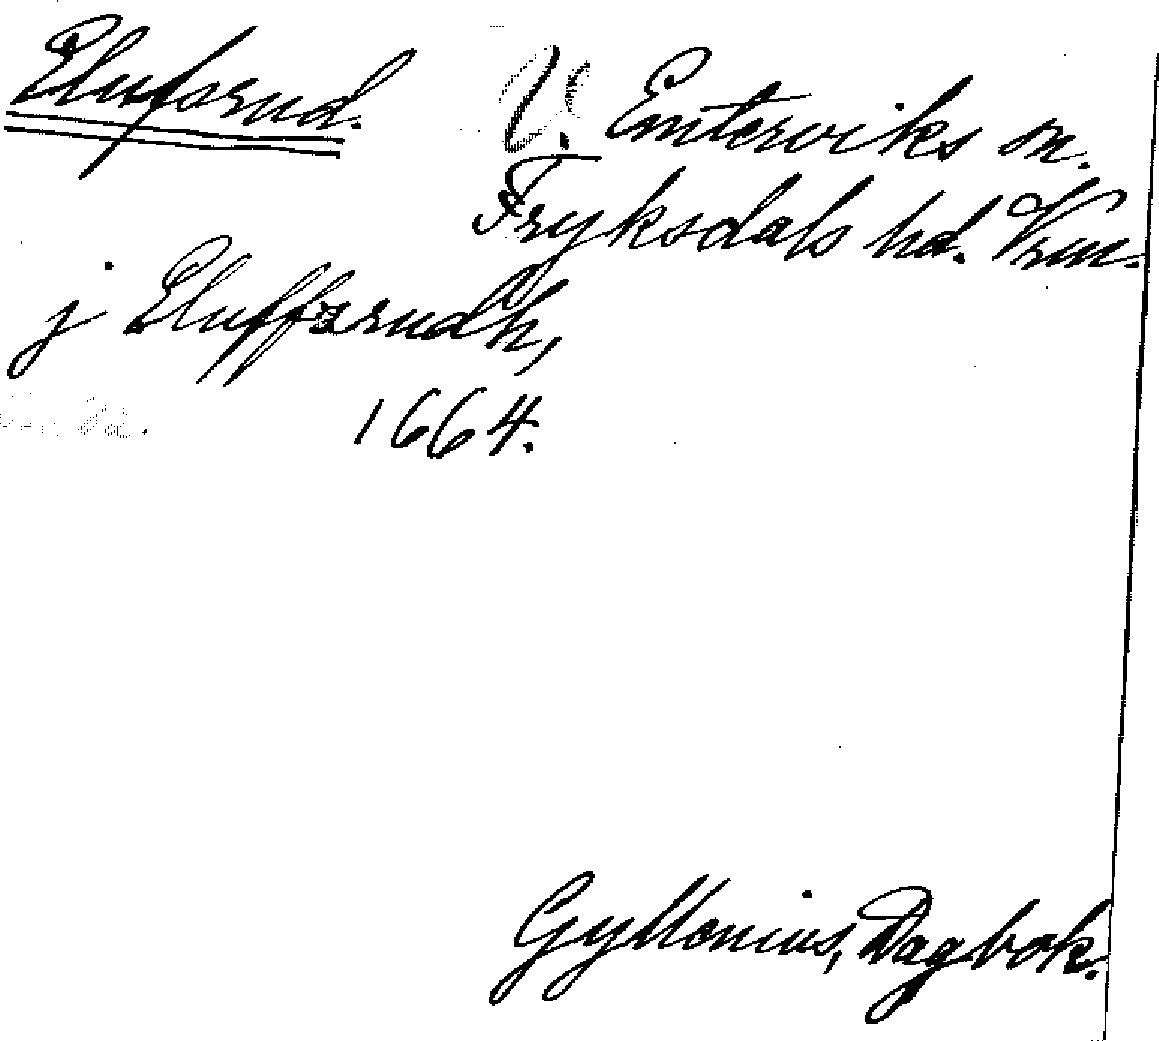 Elufsrud. V. Emterviks sn.
Fryksdals hd. Vrm.
j Eluffzrudh,
1664.
Gyllenius, Dagbok.